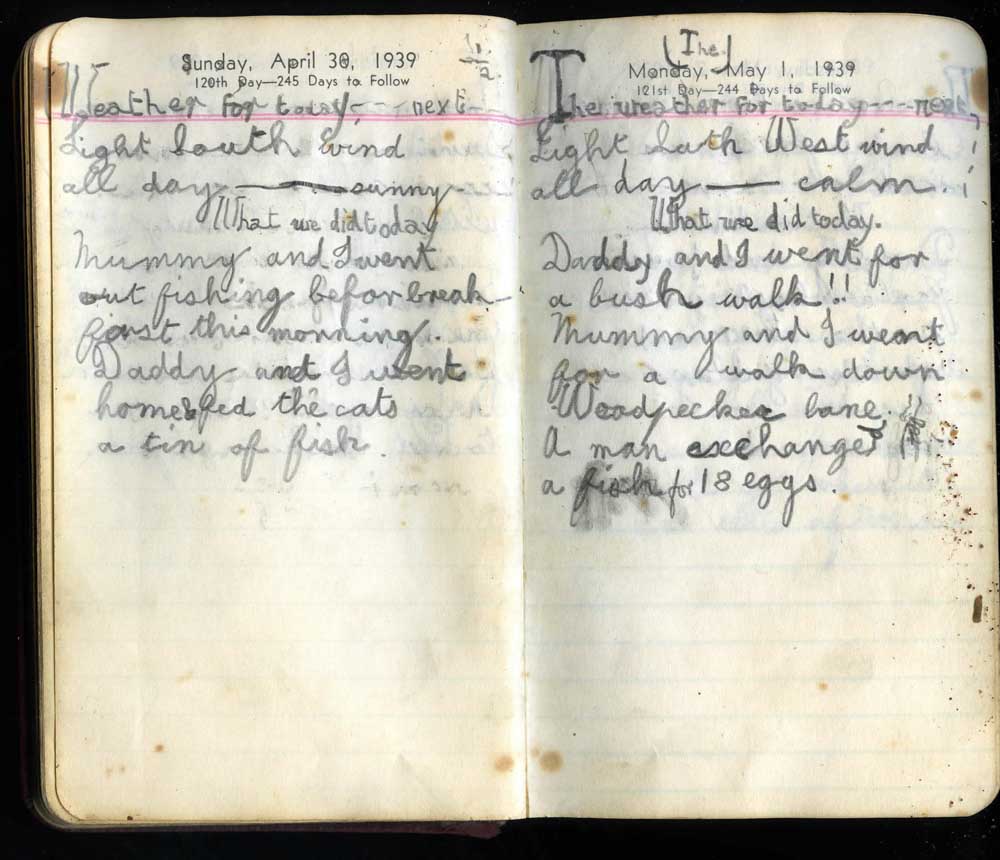 Sunday, April 30, 1939
120th Day—245 Days to Follow
Weather for today, -- next-
Light South Wind
all day — sunny
What we did today
Mummy and I went
out fishing befor break-
fast this morning.
Daddy and I went
home & fed the cats
a tin of fish.
(The)
Monday, May 1, 1939
121st Day—244 Days to Follow
The weather for to-day --- next,
Light South West wind
all day — calm
What we did today.
Daddy and I went for
a bush walk!!
Mummy and I went
for a walk down
Woodpecker lane.
A man exchanged
a fish for 18 eggs.